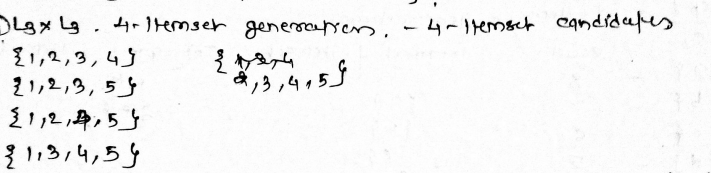 L3 x L3 . 4-Itemset generation. - 4-Itemset candidates
{1,2,3,4} {2,3,4,5}
{1,2,3,5}
{1,2,4,5}
{1,3,4,5}